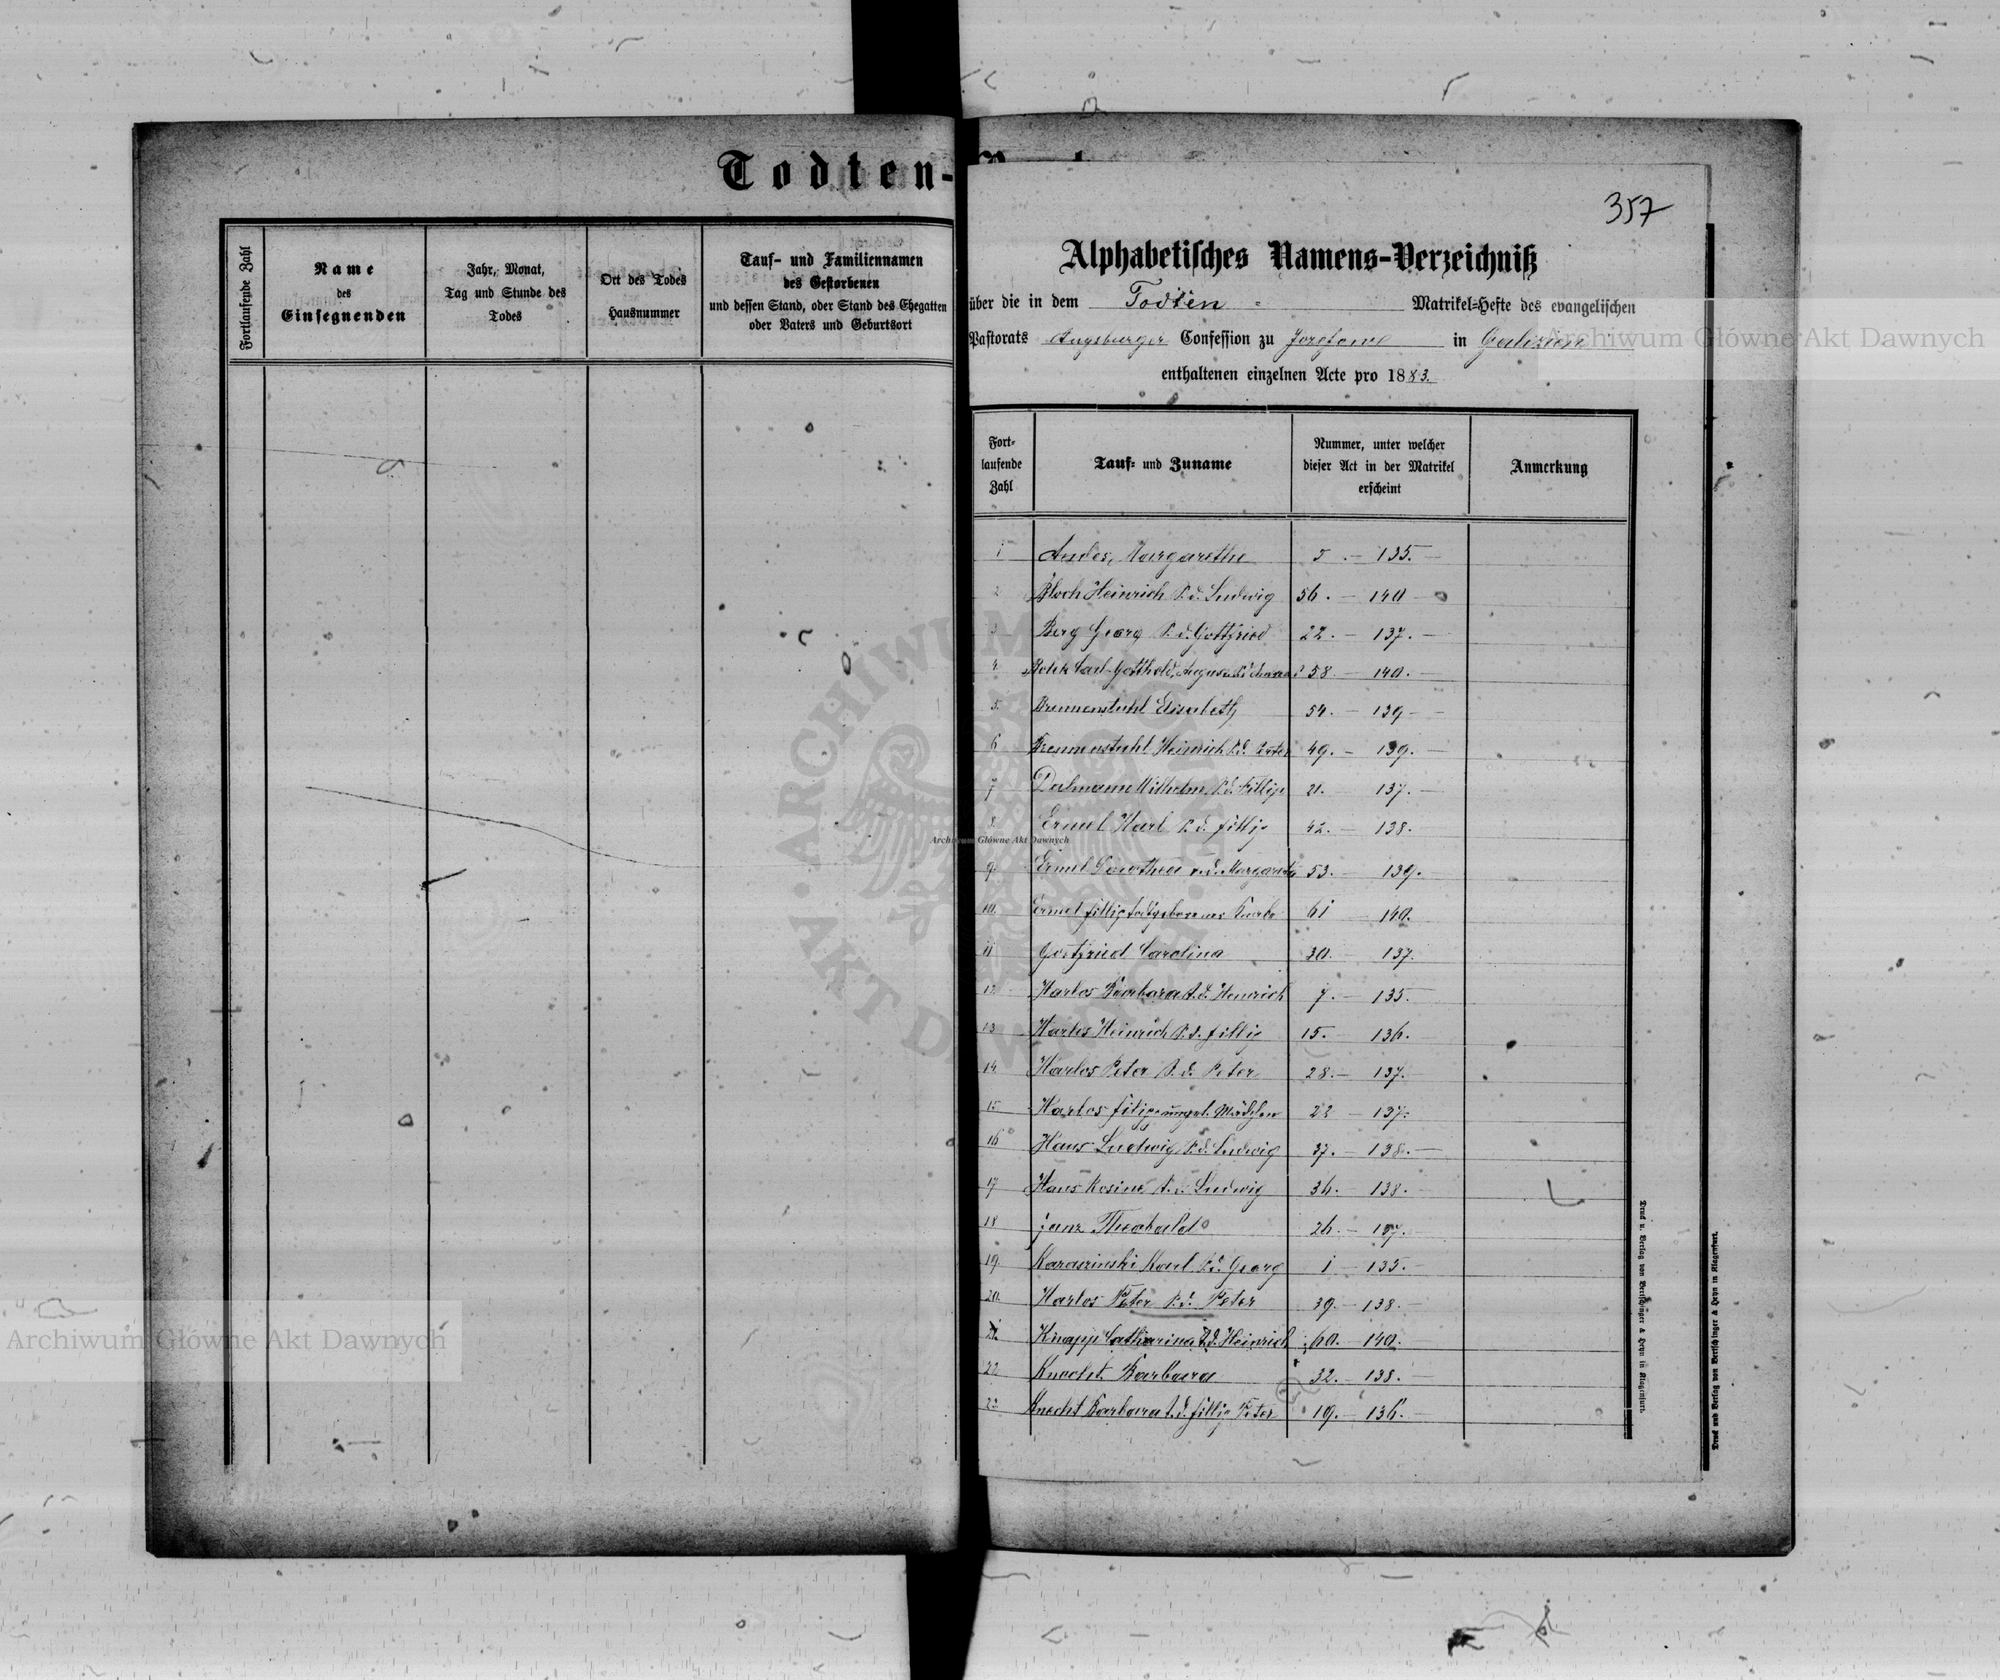 Todten-
Fortlaufende Zahl
Name
des
Einsegnenden
Jahr, Monat,
Tag und Stunde des
Todes
Ort des Todes
Hausnummer
Tauf- und Familiennamen
des Gestorbenen
und dessen Stand, oder Stand des Ehegatten
oder Vaters und Geburtsort
357
Alphabetisches Namens-Verzeichniß
über die in dem Todten- Matrikel-Hefte des evangelischen
Pastorats Augsburger Confession zu in Galizien
enthaltenen einzelnen Acte pro 1883.
Fort-
laufende
Zahl
Tauf- und Zuname
Nummer, unter welcher
dieser Act in der Matrikel
erscheint
Anmerkung
1 Andes, Margarethe 5 . — 135. —
2 Bloch Heinrich S. d. Ludwig 56 . — 140 —
3 Berg Georg S. d. Gottfried 22 . — 137. —
4 Carl Gotthold, 58 — 140. —
5. Brennenstuhl Elisabeth 54. — 139 —
6 Brennenstuhl Heinrich S. d. Peter 49. — 139. —
7 Wilhelm S. d. Fillip 21. — 137. —
8 Ermel Karl S. d. Fillip 42. — 138.
9. Ermel Dorothea 53. — 139.
10. Ermel Fillip todtgeborener Knabe 61 — 140.
11 Gottfried Carolina 30. — 137.
12 Harlos Barbara T. d. Heinrich 7. — 135.
13 Harlos Heinrich S. d. Fillip 15. — 136. —
14 Harlos Peter S. d. Peter 28. — 137.
15 Harlos Filip ungt. Mädchen 23 — 137.
16 Haus Ludwig S. d. Ludwig 37. — 138. —
17 Haus Rosine T. d. Ludwig 36. — 138. —
18 Janz Theobald 26. — 137. —
19. Karaszinski Karl S. d. Georg 1 — 135. —
20. Harlos Peter S. d. Peter 39. — 138. —
21. Knapp Catharina T. d. Heinrich 60. — 140.
22 Knecht Barbara 32. — 138. —
23 Knecht Barbara T. d. Fillip Peter 19. — 136. —
Druck u. Verlag von Bertschinger & Heyn in Klagenfurt.
Druck und Verlag von Bertschinger & Heyn in Klagenfurt.
Archiwum Główne Akt Dawnych
Archiwum Główne Akt Dawnych
Archiwum Główne Akt Dawnych